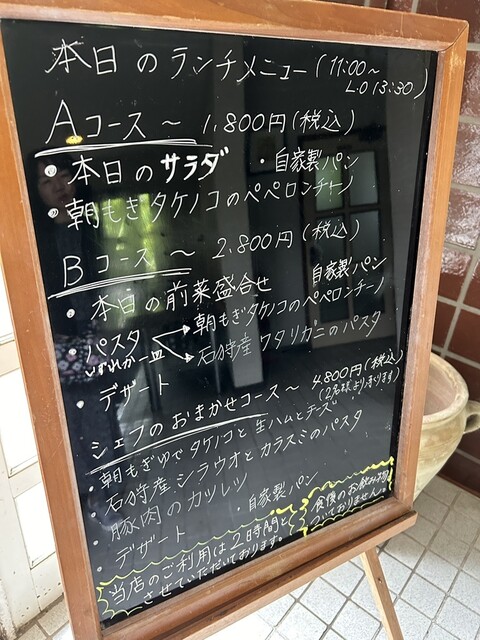 本日のランチメニュー(11:00~
L.O 13:30)
Aコース~ 1.800円(税込)
・本日のサラダ ・自家製パン
・朝もぎタケノコのペペロンチーノ
Bコース~ 2.800円(税込)
・本日の前菜盛合せ 自家製パン
・パスタ 朝もぎタケノコのペペロンチーノ
いずれか一皿 石狩産ワタリガニのパスタ
・デザート
シェフのおまかせコース~ 4.800円(税込)
(2名様より承ります)
・朝もぎゆでタケノコと生ハムとチーズ
・石狩産シラウオとカラスミのパスタ
・豚肉のカツレツ
・デザート 自家製パン
当店のご利用は2時間と
させていただいております。
食後のお飲み物
ついておりません。